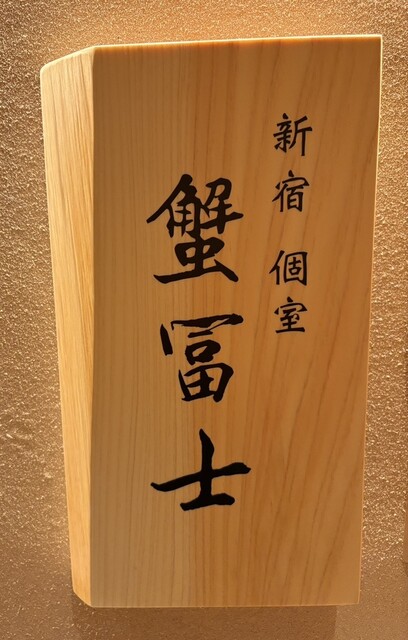 新宿 個室
蟹冨士